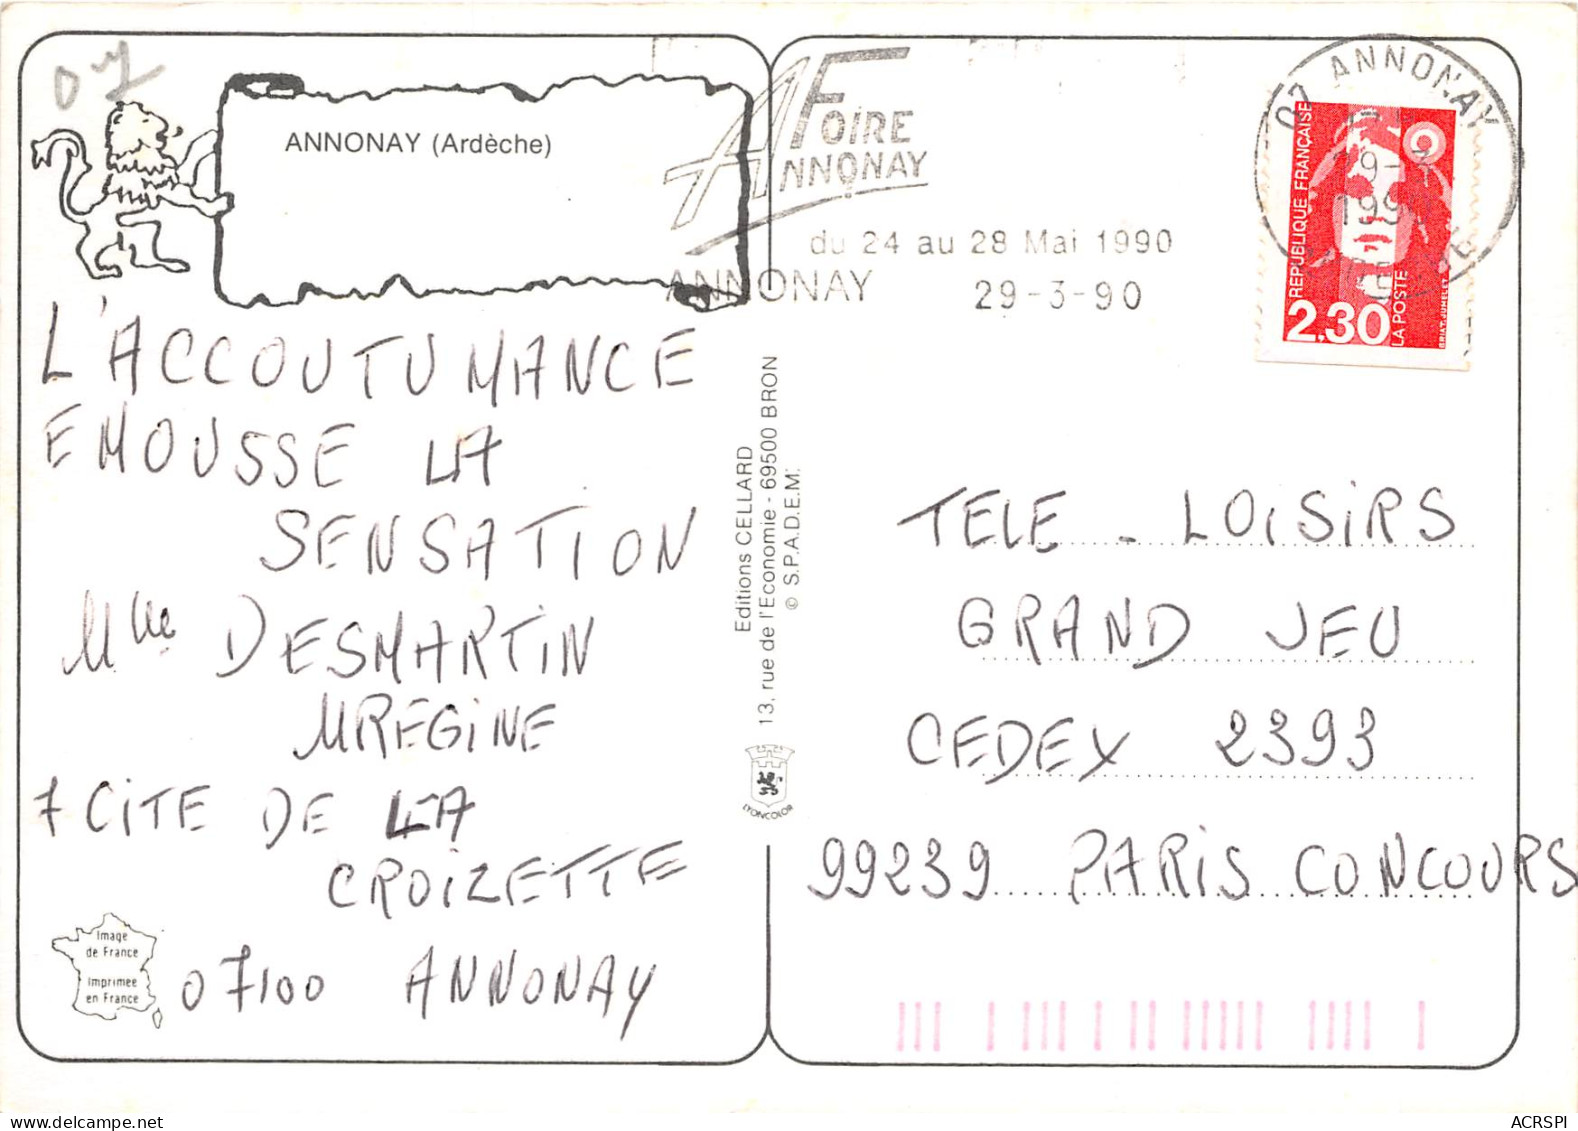 07
ANNONAY (Ardèche)
L'ACCOUTUMANCE
EMOUSSE LA
SENSATION
Mlle DESMARTIN
MREGINE
7 CITE DE LA
CROIZETTE
07100 ANNONAY
Image
de France
Imprimee
en France
Editions CELLARD
13, rue de l'Economie - 69500 BRON
© S.P.A.D.E.M.
LYONCOLOR
FOIRE
ANNONAY
du 24 au 28 Mai 1990
ANNONAY 29-3-90
07 ANNONAY
29-3
199
REPUBLIQUE FRANÇAISE
2,30
LA POSTE
BRIAT. JUMELET
TELE - LOISIRS
GRAND JEU
CEDEX 2393
99239 PARIS CONCOURS
ACRSPI